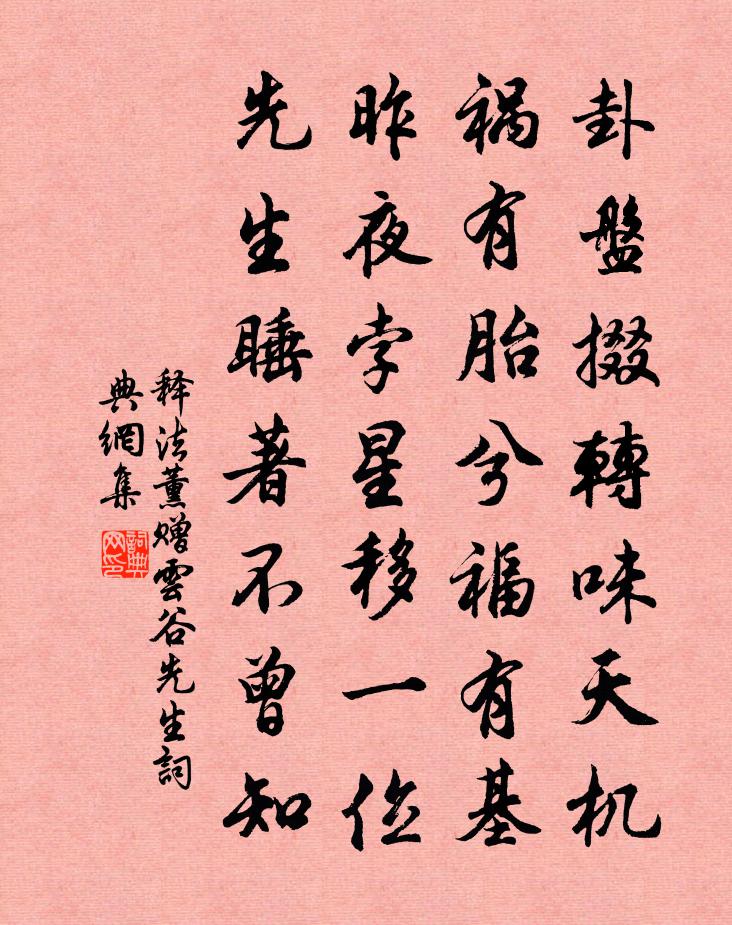 卦盤掇轉味天机
禍有胎兮福有基
昨夜孛星移一位
先生睡著不曾知
释法薰赠雲谷先生詞
典網集
詞典
网印